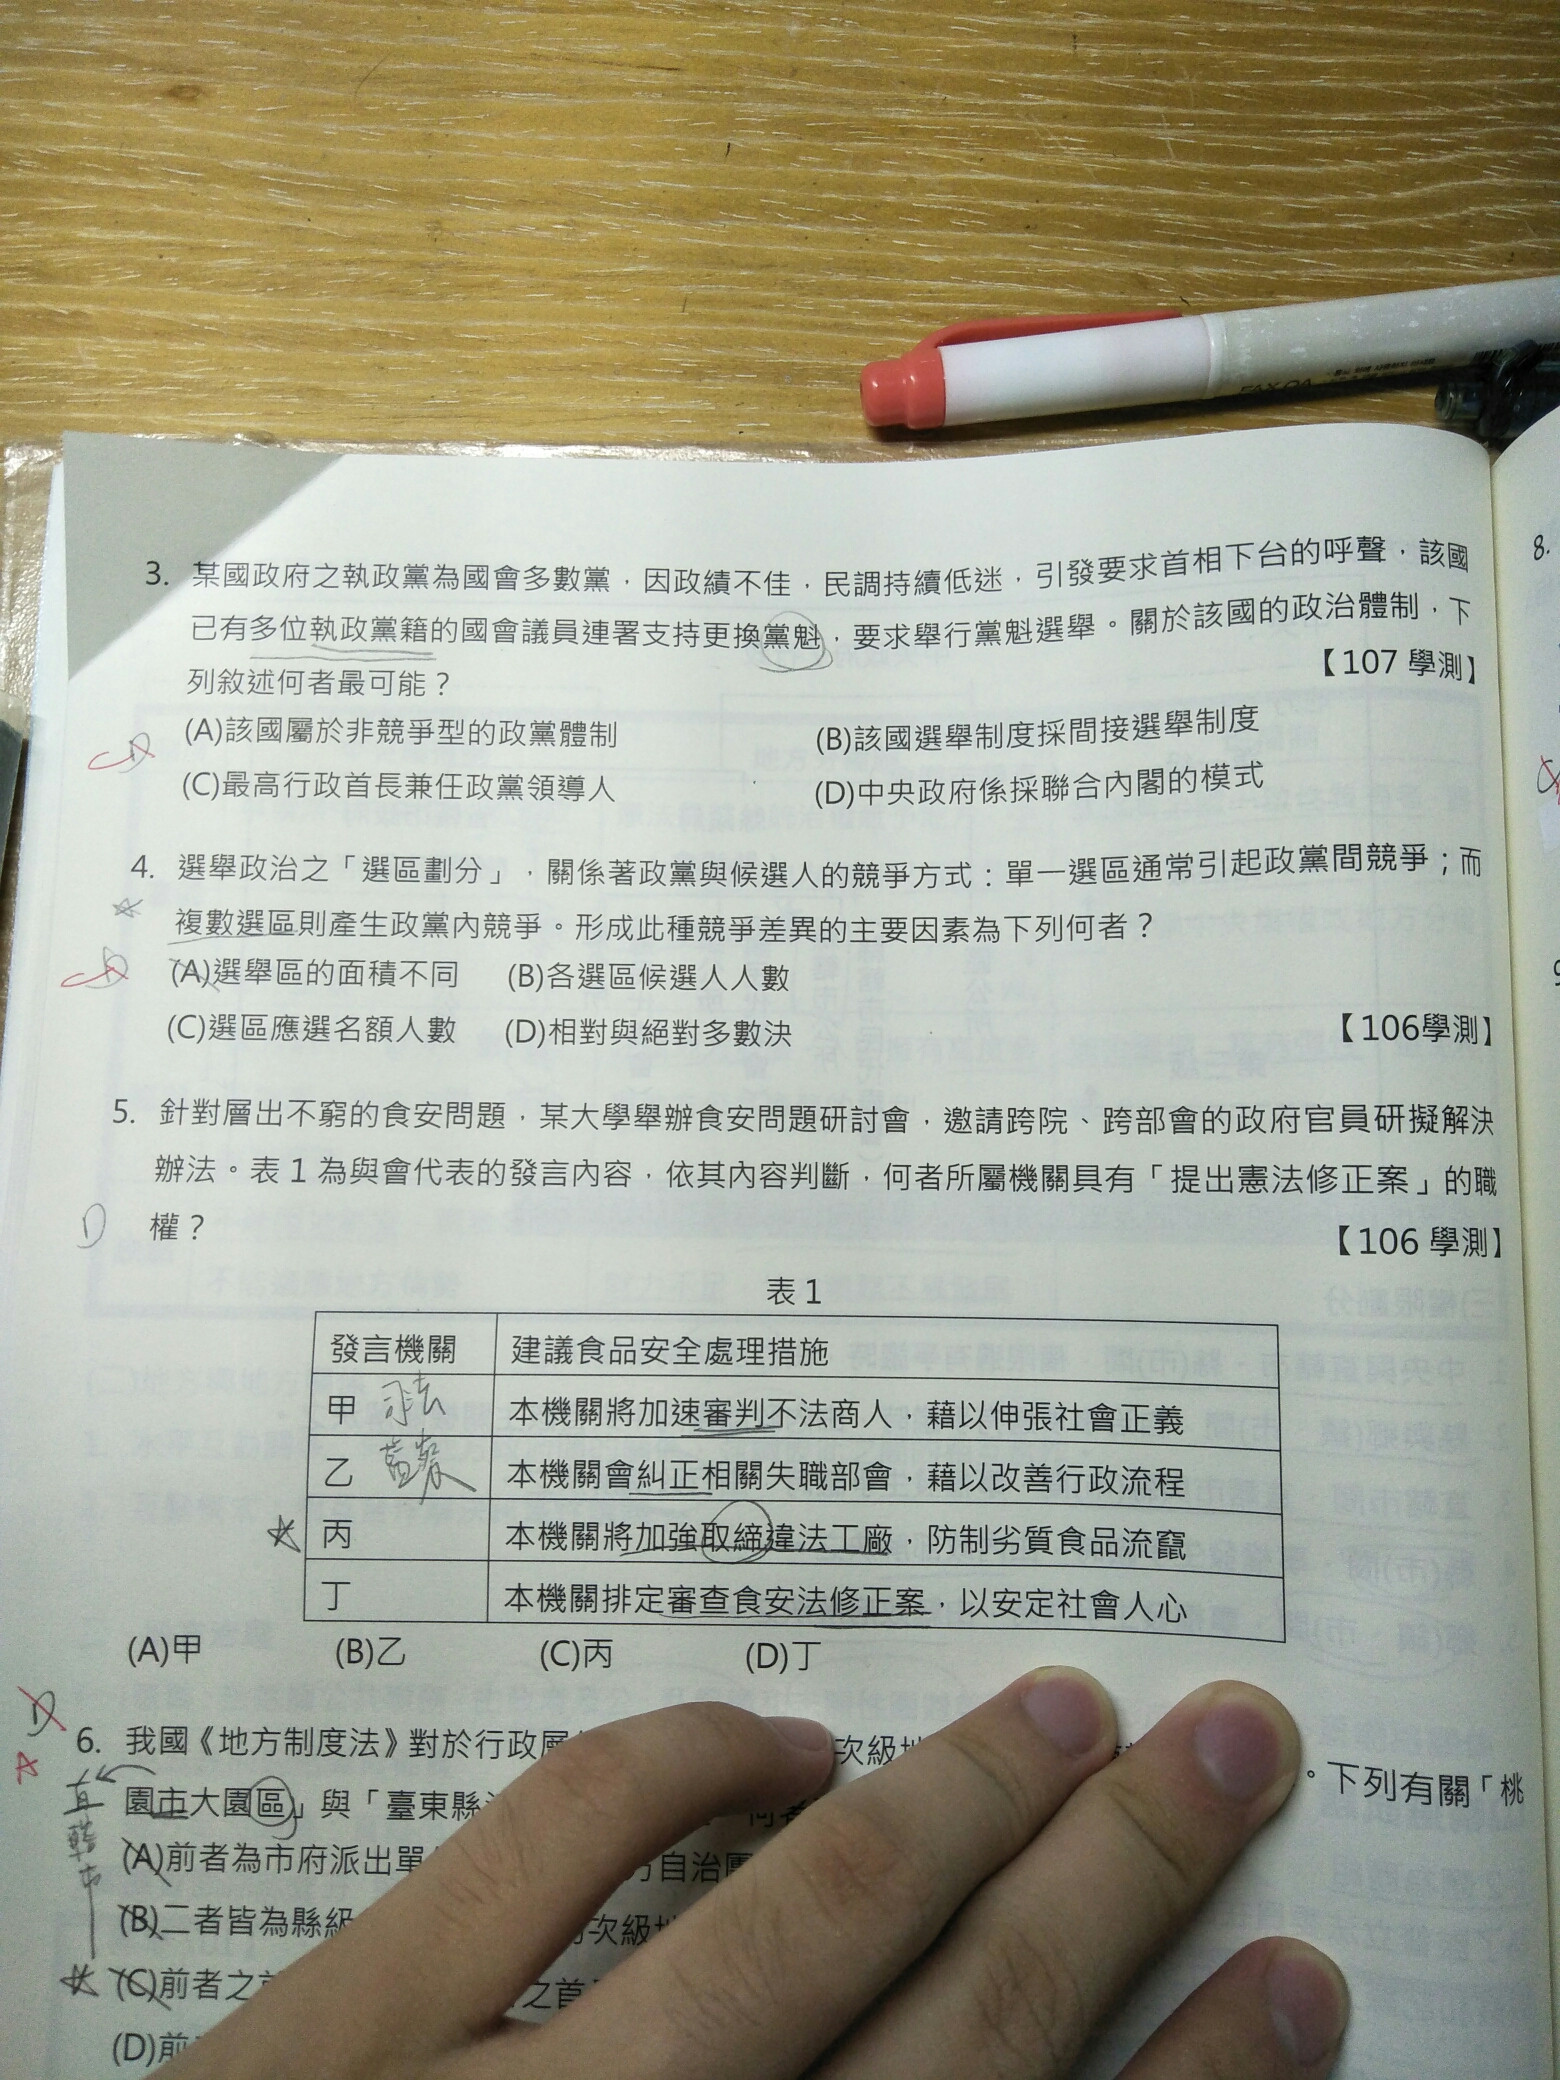 3. 某國政府之執政黨為國會多數黨，因政績不佳，民調持續低迷，引發要求首相下台的呼聲，該國
已有多位執政黨籍的國會議員連署支持更換黨魁，要求舉行黨魁選舉。關於該國的政治體制，下
列敘述何者最可能？
【107 學測】
(A)該國屬於非競爭型的政黨體制 (B)該國選舉制度採間接選舉制度
(C)最高行政首長兼任政黨領導人 (D)中央政府係採聯合內閣的模式
C D
4. 選舉政治之「選區劃分」，關係著政黨與候選人的競爭方式：單一選區通常引起政黨間競爭；而
複數選區則產生政黨內競爭。形成此種競爭差異的主要因素為下列何者？
C D
(A)選舉區的面積不同 (B)各選區候選人人數
(C)選區應選名額人數 (D)相對與絕對多數決 【106學測】
5. 針對層出不窮的食安問題，某大學舉辦食安問題研討會，邀請跨院、跨部會的政府官員研擬解決
辦法。表 1 為與會代表的發言內容，依其內容判斷，何者所屬機關具有「提出憲法修正案」的職
D 權？ 【106 學測】
表 1
發言機關 建議食品安全處理措施
甲 司法 本機關將加速審判不法商人，藉以伸張社會正義
乙 監察 本機關會糾正相關失職部會，藉以改善行政流程
丙 本機關將加強取締違法工廠，防制劣質食品流竄
丁 本機關排定審查食安法修正案，以安定社會人心
(A)甲 (B)乙 (C)丙 (D)丁
D
A
6. 我國《地方制度法》對於行政層 次級地 。下列有關「桃
園市大園區」與「臺東縣
直轄市
(A)前者為市府派出單 方自治團
(B)二者皆為縣級 次級地
(C)前者之 之首
(D)前
8.
9